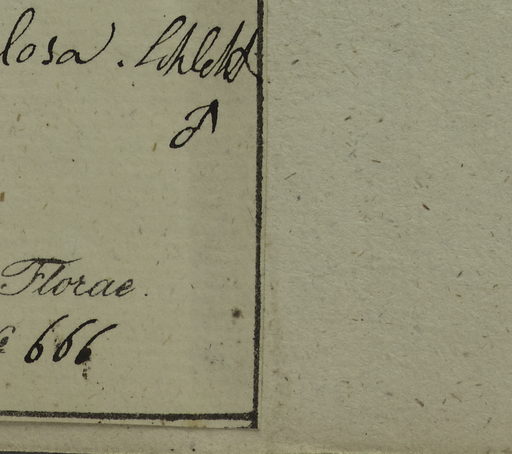 losa. Schlchtd
♂
Florae.
666